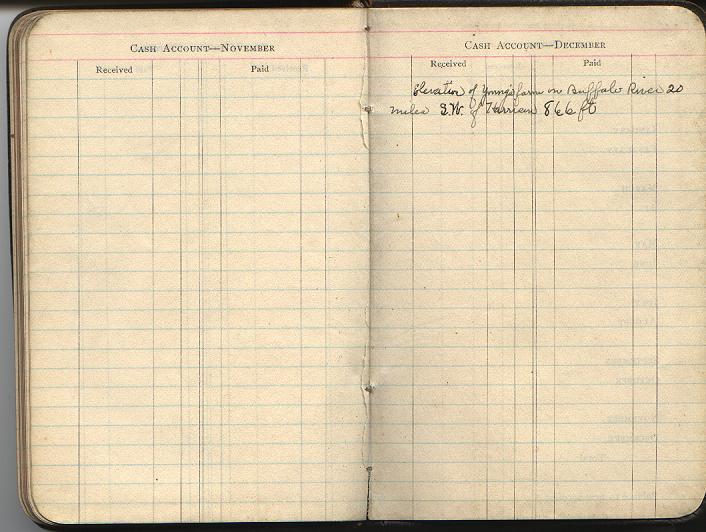 CASH ACCOUNT—NOVEMBER
Received Paid
CASH ACCOUNT—DECEMBER
Received Paid
Elevation of Young's farm on Buffalo River 20
miles S.W. of Harrison 866 ft